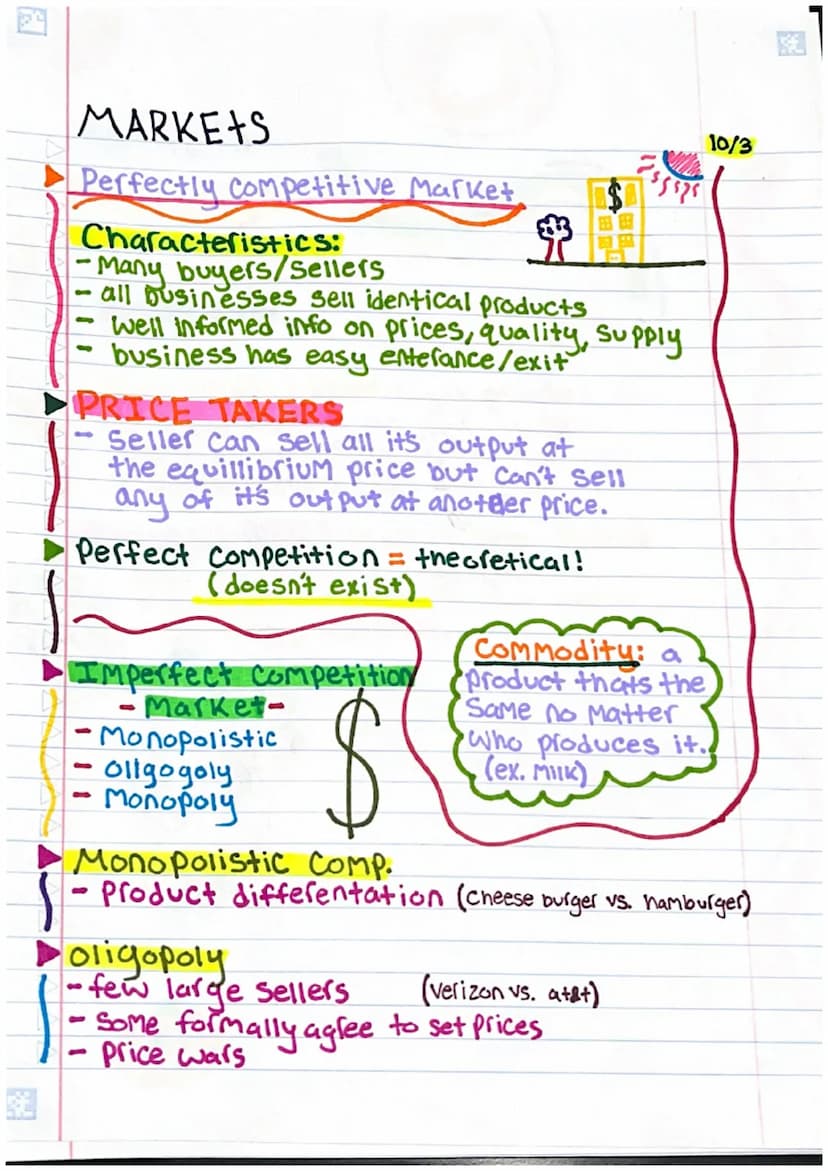 MARKETS
10/3
Perfectly competitive Market
Characteristics:
- Many buyers/sellers
- all businesses sell identical products
- well informed info on prices, quality, supply
- business has easy enterance/exit
PRICE TAKERS
- Seller can sell all it's output at
the equillibrium price but can't sell
any of it's output at another price.
Perfect competition = theoretical!
(doesn't exist)
Imperfect competition
- Market -
- Monopolistic
- Oligogoly
- Monopoly
$
Commodity: a
product thats the
same no matter
who produces it.
(ex. Milk)
Monopolistic Comp.
- Product differentation (cheese burger vs. hamburger)
Oligopoly
- few large sellers (verizon vs. at&t)
- some formally agree to set prices
- price wars